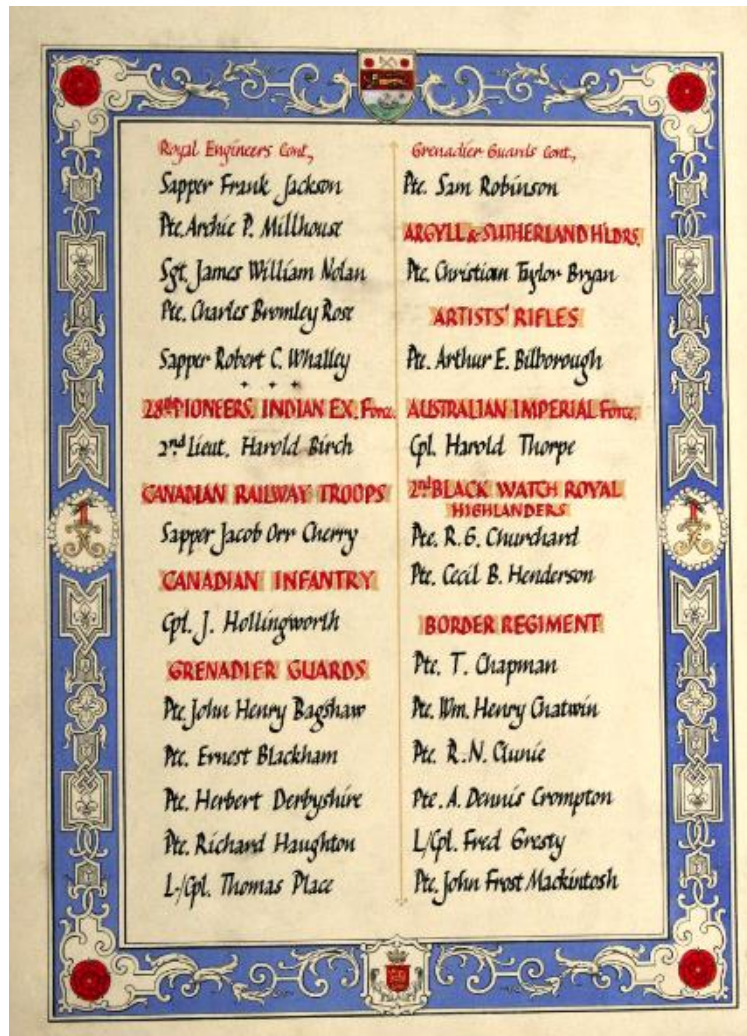 Royal Engineers Cont.,
Sapper Frank Jackson
Pte. Archie P. Millhouse
Sgt. James William Nolan
Pte. Charles Bromley Rose
Sapper Robert C. Whalley
28th PIONEERS, INDIAN EX. Force.
2nd Lieut. Harold Birch
CANADIAN RAILWAY TROOPS
Sapper Jacob Orr Cherry
CANADIAN INFANTRY
Cpl. J. Hollingworth
GRENADIER GUARDS
Pte. John Henry Bagshaw
Pte. Ernest Blackham
Pte. Herbert Derbyshire
Pte. Richard Haughton
L/Cpl. Thomas Place
Grenadier Guards Cont.,
Pte. Sam Robinson
ARGYLL & SUTHERLAND H'LDRS.
Pte. Christian Taylor Bryan
ARTISTS' RIFLES
Pte. Arthur E. Bilborough
AUSTRALIAN IMPERIAL Force.
Cpl. Harold Thorpe
2nd BLACK WATCH ROYAL
HIGHLANDERS
Pte. R.G. Churchard
Pte. Cecil B. Henderson
BORDER REGIMENT
Pte. T. Chapman
Pte. Wm. Henry Chatwin
Pte. R.N. Clunie
Pte. A. Dennis Crompton
L/Cpl. Fred Gresty
Pte. John Frost Mackintosh